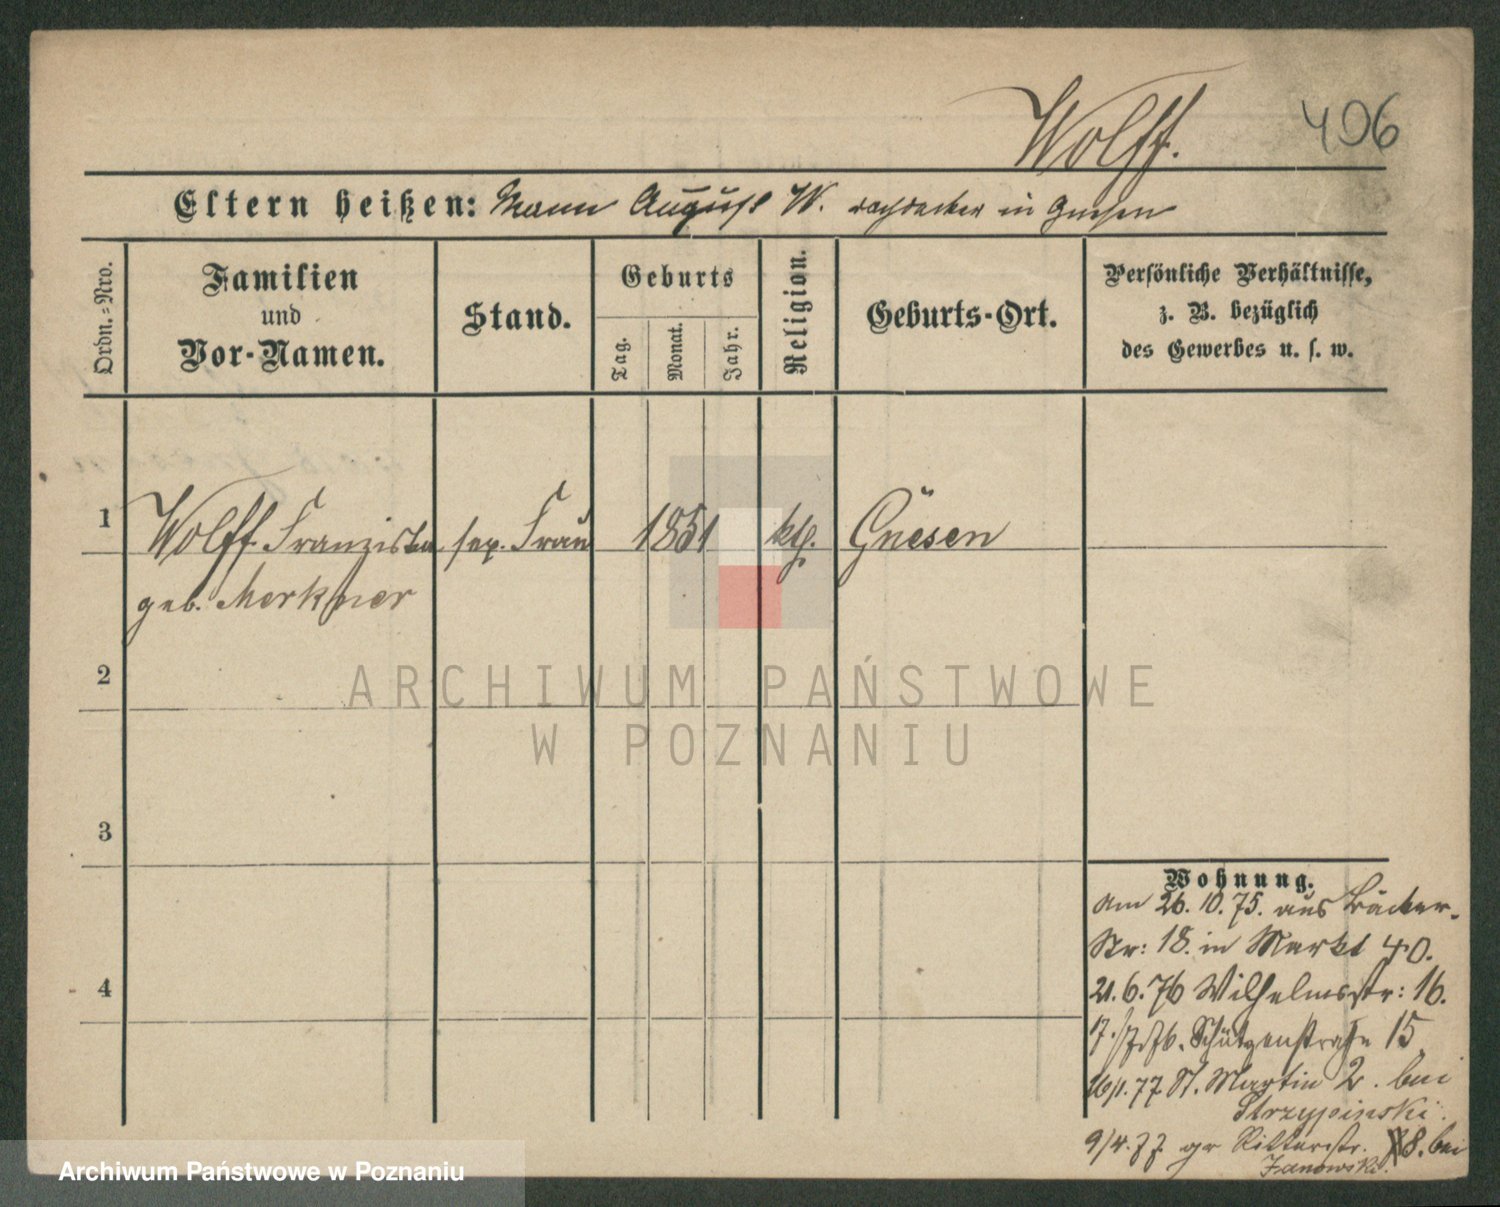 Wolff.
406
Eltern heißen: Mann August W. Dachdecker in Gnesen
Ordn.-Nro.
Familien
und
Vor-Namen.
Stand.
Geburts
Tag.
Monat.
Jahr.
Religion.
Geburts-Ort.
Persönliche Verhältnisse,
z. B. bezüglich
des Gewerbes u. s. w.
1 Wolff Franziska sep. Frau 1851 kth. Gnesen
geb. Merkner
2
3
4
Wohnung.
am 26. 10. 75. aus Bäcker-
Str: 18. in Markt 40.
21. 6. 76 Wilhelmsstr: 16.
17./7. 76. Schützenstraße 15
16/1. 77 St. Martin 2. bei
Strzypinski.
9/4. 77 gr Ritterstr. 8. bei
Janowski.
ARCHIWUM PAŃSTWOWE
W POZNANIU
Archiwum Państwowe w Poznaniu